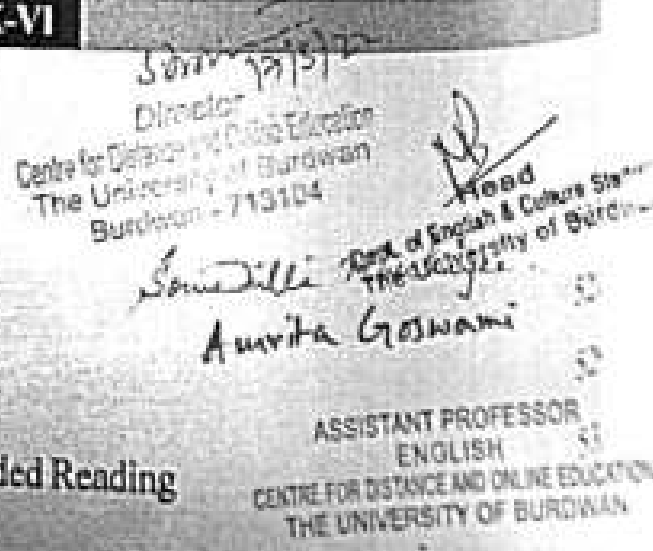 X-VI
Director
Centre for Distance and Online Education
The University of Burdwan
Burdwan - 713104
Head
Dept. of English & Culture
The University of
Amrita Goswami
ASSISTANT PROFESSOR
ENGLISH
CENTRE FOR DISTANCE AND ONLINE EDUCATION
THE UNIVERSITY OF BURDWAN
ded Reading